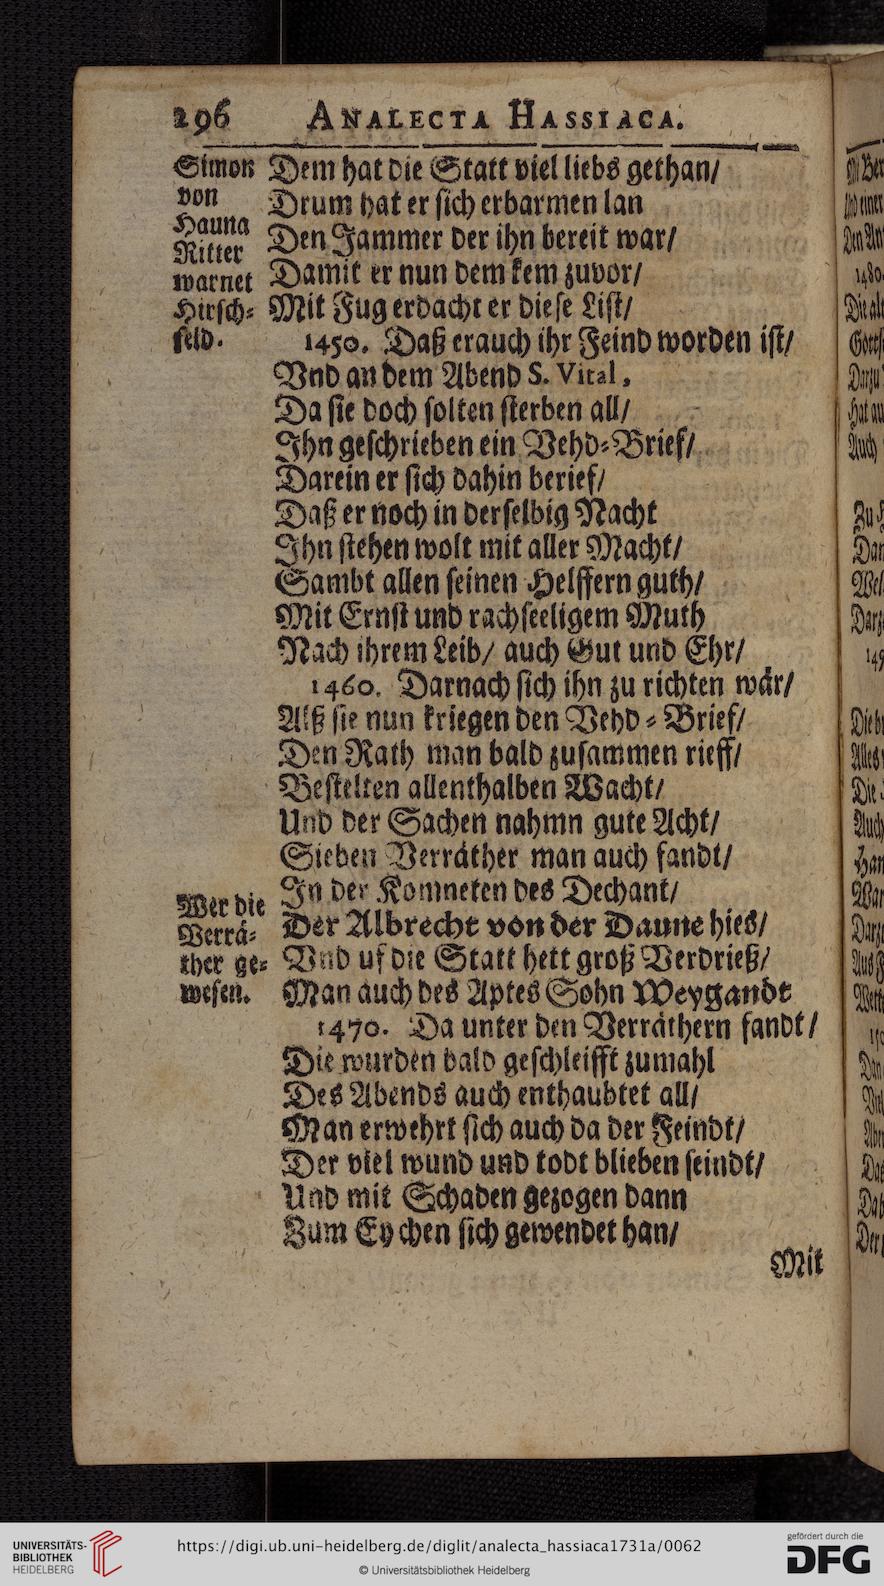 296 ANALECTA HASSIACA.
Simon
von
Hauna
Ritter
warnet
Hirsch-
feld.
Dem hat die Statt viel liebs gethan/
Drum hat er sich erbarmen lan
Den Jammer der ihn bereit war/
Damit er nun dem kem zuvor/
Mit Fug erdacht er diese List/
1450. Daß er auch ihr Feind worden ist/
Vnd an dem Abend S. Vital,
Da sie doch solten sterben all/
Ihn geschrieben ein Vehd-Brief/
Darein er sich dahin berief/
Daß er noch in derselbig Nacht
Ihn stehen wolt mit aller Macht/
Sambt allen seinen Helffern guth/
Mit Ernst und rachseeligem Muth
Nach ihrem Leib/ auch Gut und Ehr/
1460. Darnach sich ihn zu richten wär/
Alß sie nun kriegen den Vehd-Brief/
Den Rath man bald zusammen rieff/
Bestelten allenthalben Wacht/
Und der Sachen nahmn gute Acht/
Sieben Verräther man auch fandt/
In der Komneten des Dechant/
Wer die
Verrä-
ther ge-
wesen.
Der Albrecht von der Daune hies/
Vnd uf die Statt hett groß Verdrieß/
Man auch des Aptes Sohn Weygandt
1470. Da unter den Verräthern fandt/
Die wurden bald geschleifft zumahl
Des Abends auch enthaubtet all/
Man erwehrt sich auch da der Feindt/
Der viel wund und todt blieben seindt/
Und mit Schaden gezogen dann
Zum Eychen sich gewendet han/
Mit
UNIVERSITÄTS-
BIBLIOTHEK
HEIDELBERG
https://digi.ub.uni-heidelberg.de/diglit/analecta_hassiaca1731a/0062
© Universitätsbibliothek Heidelberg
gefördert durch die
DFG